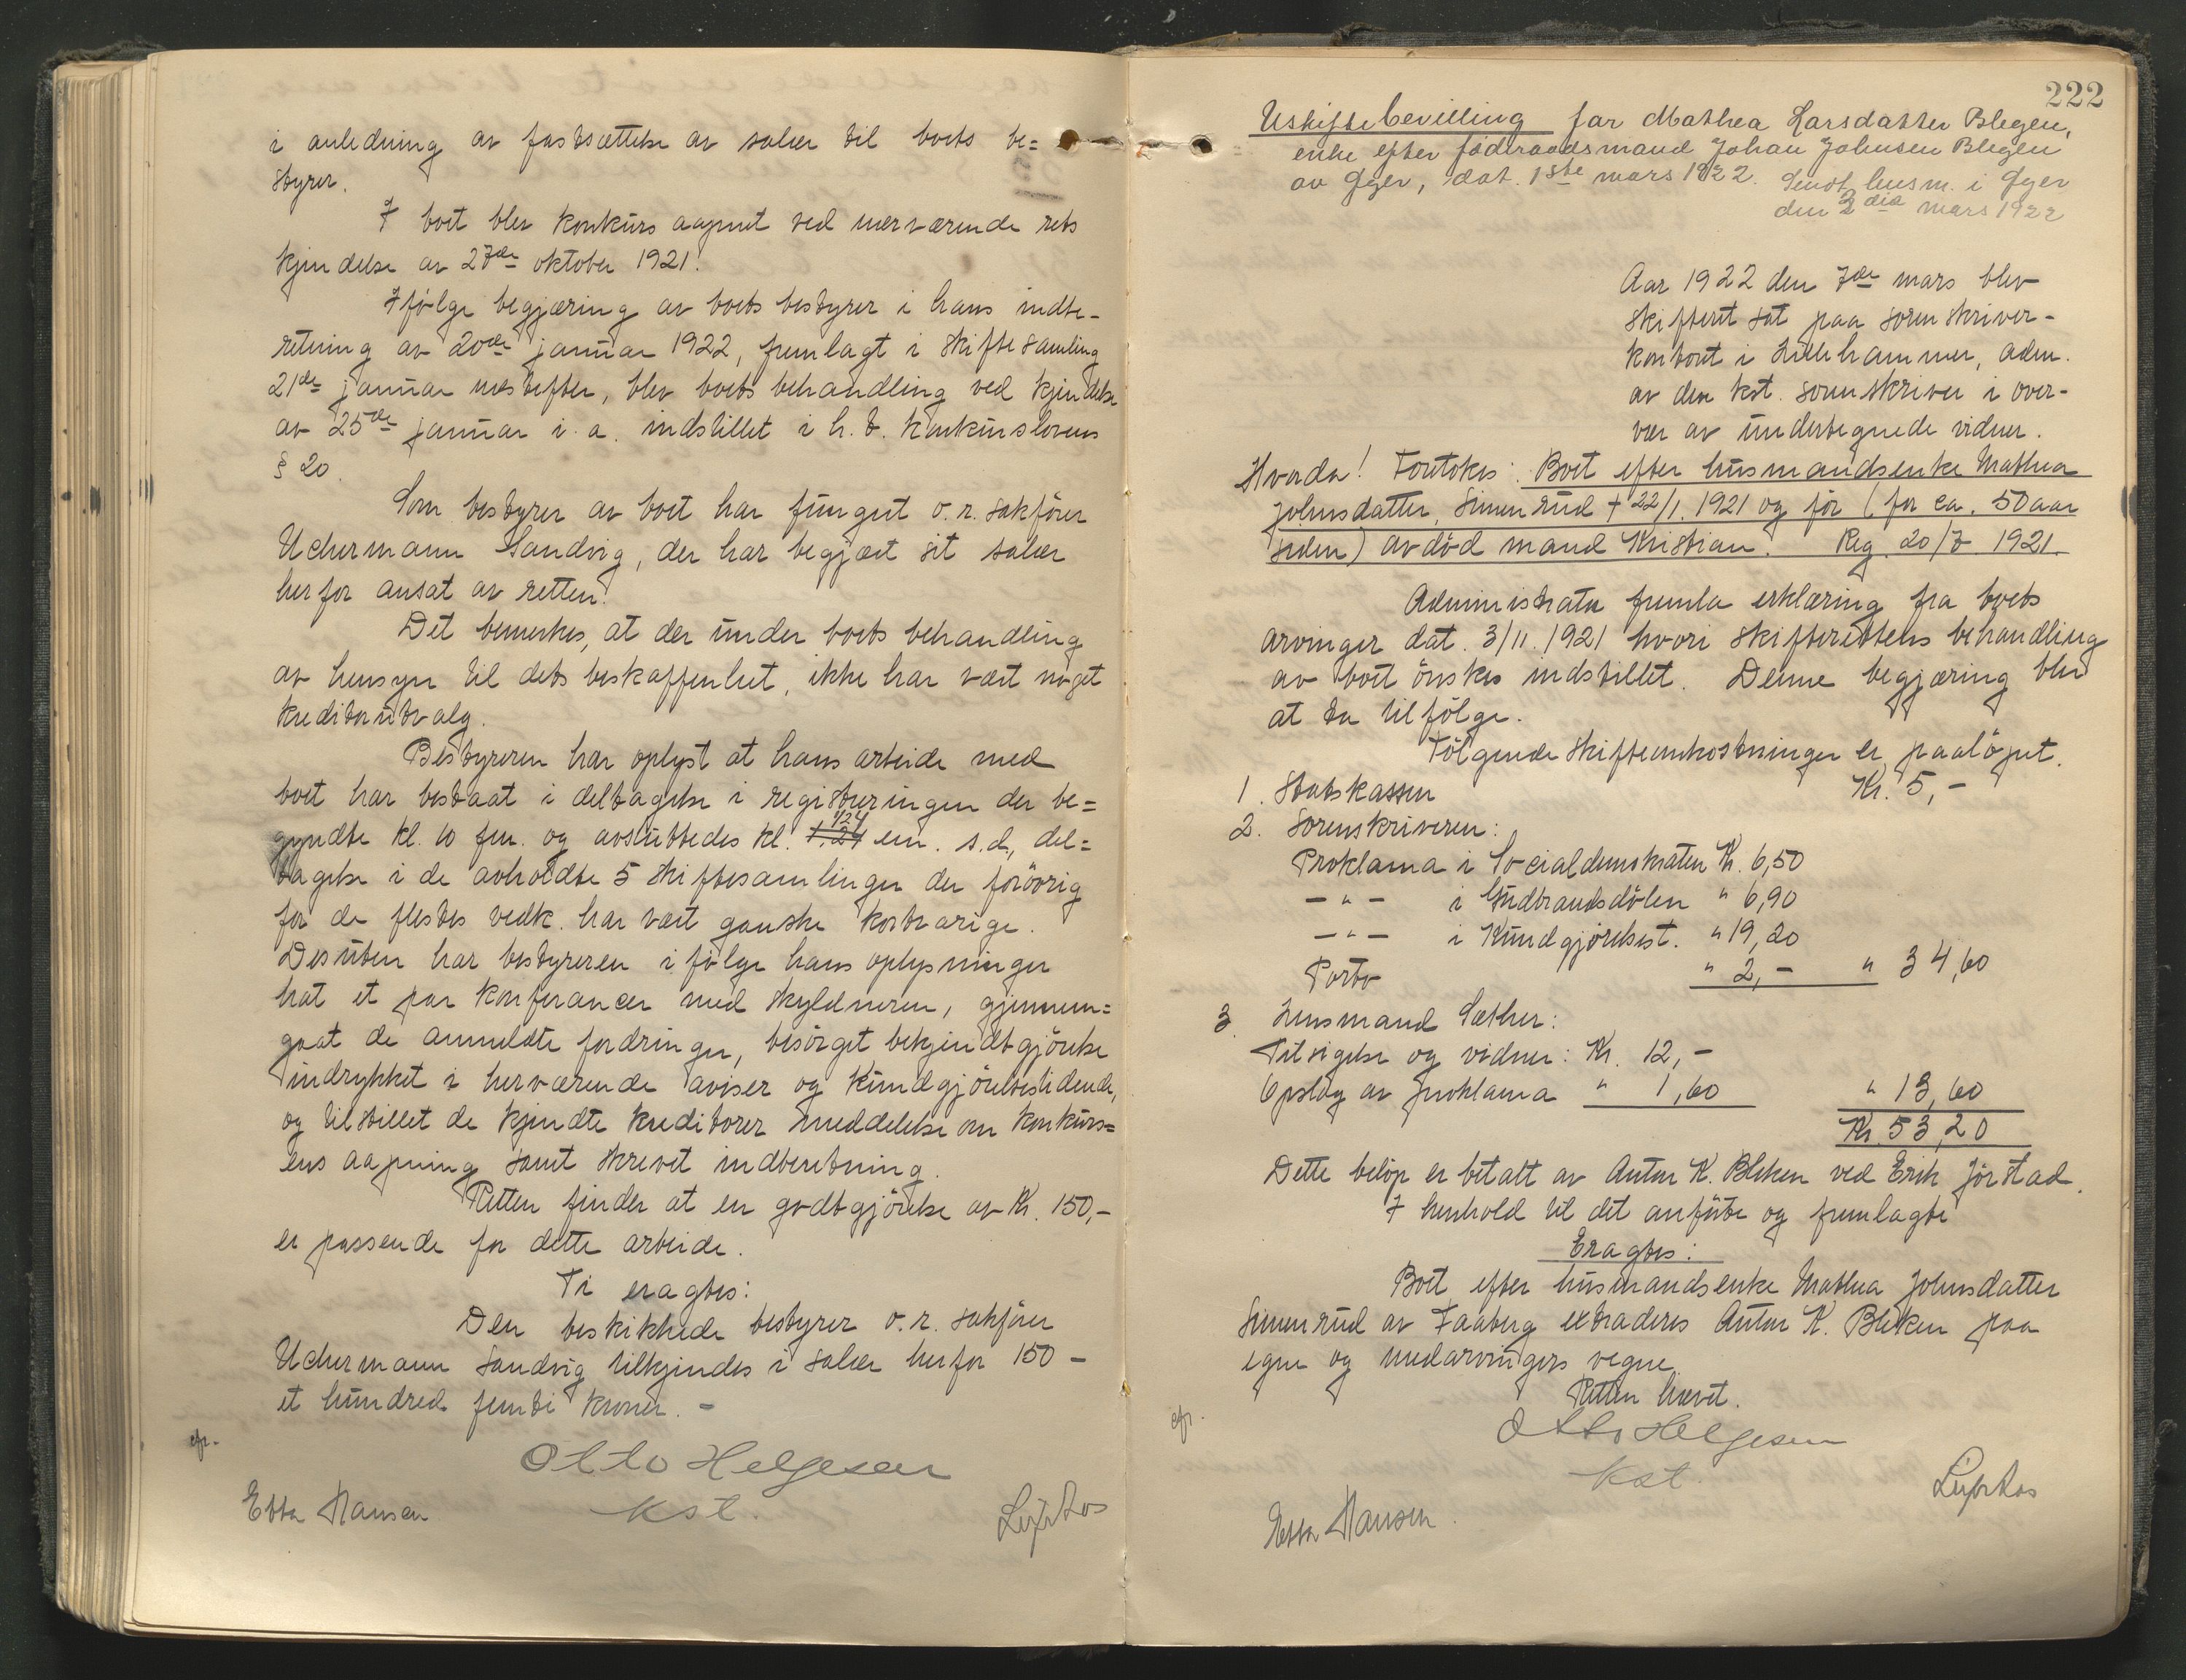 i anledning av fastsættelse av salær til boets be=
styrer.
I boet blev konkurs aapnet ved nærværende rets
kjendelse av 27de oktober 1921.
Ifølge begjæring av boets bestyrer i hans indbe-
retning av 20de januar 1922, fremlagt i skiftesamling
21de januar næstefter, blev boets behandling ved kjendelse
av 25de januar i. a. indstillet i h. t. konkurslovens
§ 20.
Som bestyrer av boet har fungert o.r. sakfører
Uchermann Sandvig, der har begjært sit salær
herfor ansat av retten.
Det bemerkes, at der under boets behandling
av hensyn til dets beskaffenhet, ikke har vært noget
kreditorutvalg.
Bestyreren har oplyst at hans arbeide med
boet har bestaat i deltagelse i registreringen der be=
gyndte kl. 10 fm. og avsluttedes kl. 1.24 em. s.d., del=
tagelse i de avholdte 5 skiftesamlinger der forøvrig
for de flestes vedk. har vært ganske kortvarige.
Desuten har bestyreren ifølge hans oplysninger
hat et par konferancer med skyldneren, gjennem=
gaat de anmeldte fordringer, besørget bekjendtgjørelse
indrykket i herværende aviser og Kundgjørelsestidende,
og tilstillet de kjendte kreditorer meddelelse om konkurs=
ens aapning samt skrevet indberetning.
Retten finder at en godtgjørelse av Kr. 150,-
er passende for dette arbeide.
Ti eragtes:
Den beskikkede bestyrer o.r. sakfører
Uchermann Sandvig tilkjendes i salær herfor 150 -
et hundred femti kroner. -
Otto Helgesen
kst.
Ebba Hansen
222
Uskiftebevilling for Mathea Larsdatter Blegen,
enke efter føderaadsmand Johan Johnsen Blegen
av Øyer, dat. 1ste mars 1922. Sendt lensm. i Øyer
den 2den mars 1922
Aar 1922 den 7de mars blev
skifteret sat paa sorenskriver-
kontoret i Lillehammer, adm.
av den kst. sorenskriver i over-
vær av undertegnede vidner.
Hvorda! Foretokes: Boet efter husmandsenke Mathea
Johnsdatter, Simenrud † 22/1. 1921 og før (for ca. 50 aar
siden) avdød mand Kristian. Reg. 20/7 1921.
Administrator fremla erklæring fra boets
arvinger dat. 3/11. 1921 hvori skifterettens behandling
av boet ønskes indstillet. Denne begjæring blev
at ta tilfølge.
Følgende skifteomkostninger er paaløpet.
1. Statskassen Kr. 5,-
2. Sorenskriveren:
Proklama i Socialdemokraten Kr. 6,50
- " - i Gudbrandsdølen " 6,90
- " - i Kundgjørelsest. " 19,20
Porto " 2,- " 34,60
3. Lensmand Sæther:
Tilsigelse og vidner: Kr. 12,-
Opslag av proklama " 1,60 " 13,60
Kr 53,20
Dette beløp er betalt av Anton K. Bleken ved Erik Jørstad.
I henhold til det anførte og fremlagte
Eragtes:
Boet efter husmandsenke Mathea Johnsdatter
Simenrud av Faaberg extraderes Anton K. Bleken paa
egne og medarvingers vegne.
Retten hævet.
Otto Helgesen
kst.
Ebba Hansen